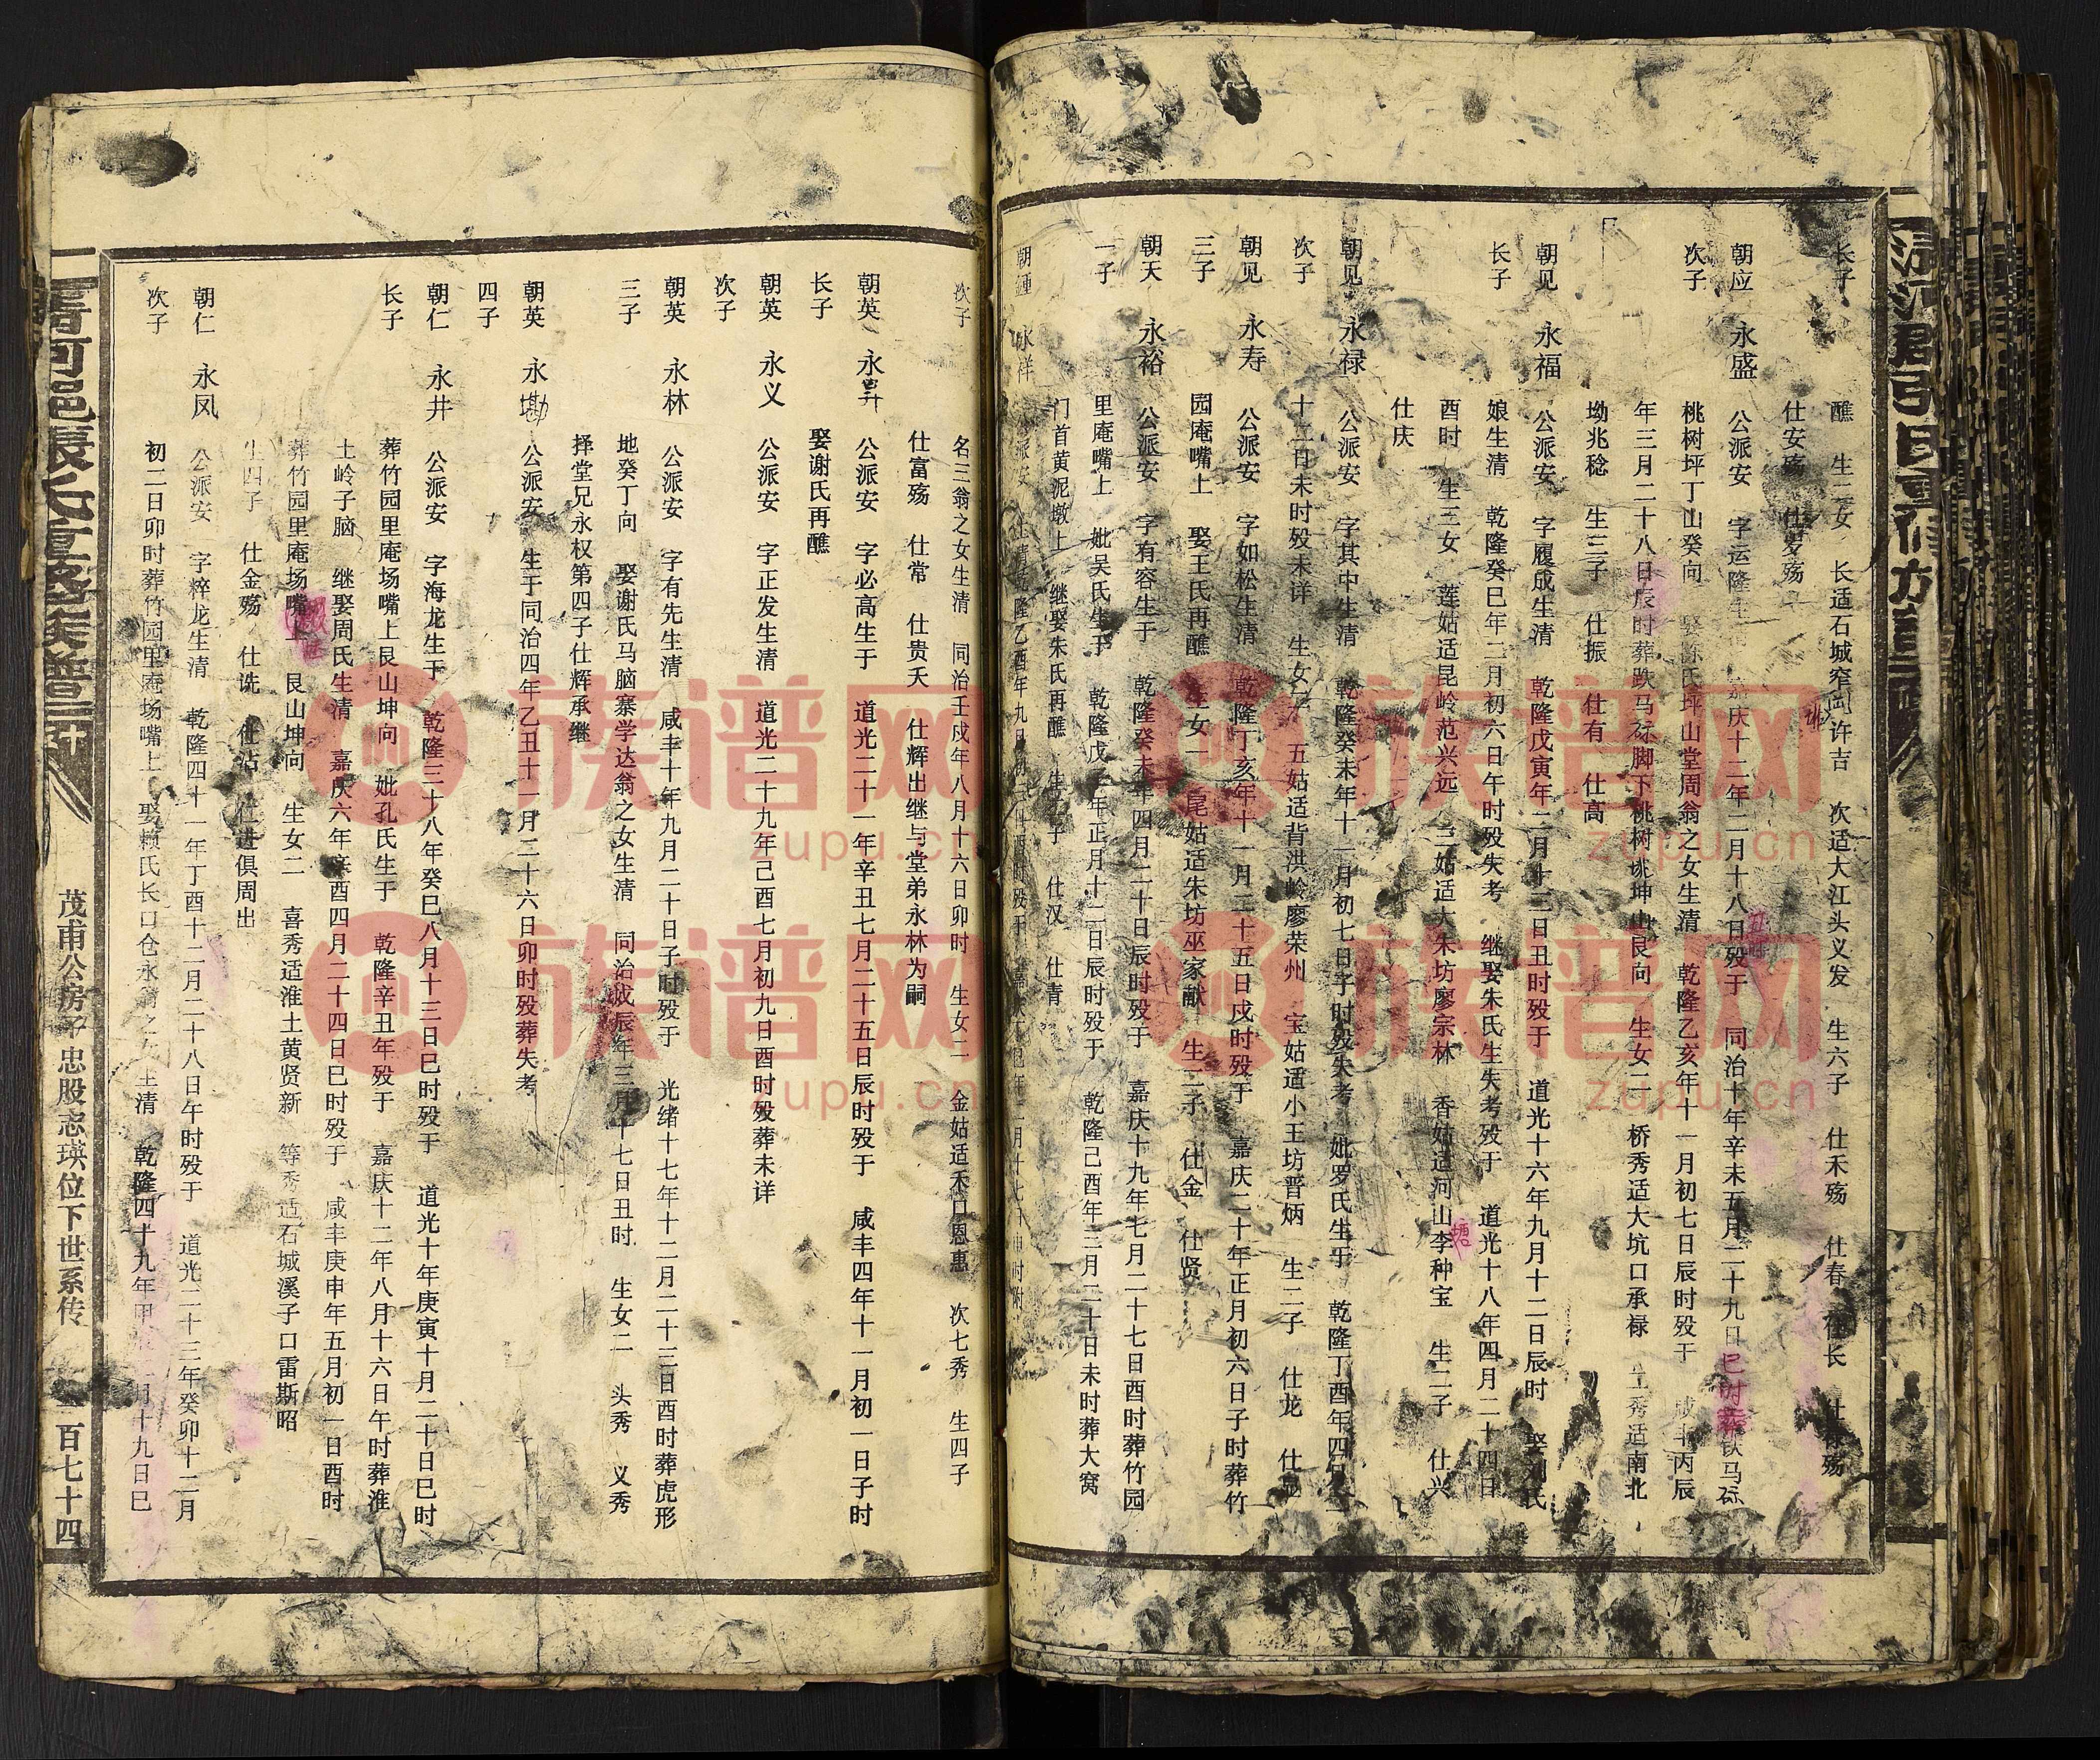 长子 醮 生二女 长适石城窄岡许吉 次适大江头义发 生六子 仕禾殇 仕春 仕长 殇
仕安殇 仕岁殇
朝应 永盛 公派安 字运隆生清 嘉庆十二年二月十八日殁于 同治十年辛未五月二十九日巳时葬 马
次子 桃树坪丁山癸向 娶陈氏坪山堂周翁之女生清 乾隆乙亥年十一月初七日辰时殁于 咸丰丙辰
年三月二十八日辰时葬跌马 脚下桃树 坤山艮向 生女二 桥秀适大坑口承禄 秀适南北
坳兆稔 生三子 仕振 仕有 仕高
朝见 永福 公派安 字履成生清 乾隆戊寅年二月十三日丑时殁于 道光十六年九月十二日辰时 娶刘氏
长子 娘生清 乾隆癸巳年二月初六日午时殁失考 继娶朱氏生失考殁于 道光十八年四月二十四日
酉时 生三女 莲姑适昆岭范兴远 二姑适大朱坊廖宗林 香姑适河山李种宝 生二子 仕兴
仕庆
朝见 永禄 公派安 字其中生清 乾隆癸未年十一月初七日子时殁失考 妣罗氏生于 乾隆丁酉年四月
次子 十二日未时殁未详 生女 五姑适背洪岭廖荣州 宝姑适小王坊晋炳 生二子 仕龙 仕显
朝见 永寿 公派安 字如松生清 乾隆丁亥年十一月二十五日戌时殁于 嘉庆二十年正月初六日子时葬竹
三子 园庵嘴上 娶王氏再醮 生女一 尾姑适朱坊巫家献 生二子 仕金 仕贤
朝天 永裕 公派安 字有容生于 乾隆癸未年四月二十日辰时殁于 嘉庆十九年七月二十七日酉时葬竹园
一子 里庵嘴上 妣吴氏生于 乾隆戊子年正月十二日辰时殁于 乾隆己酉年三月二十日未时葬大窝
门首黄泥墩上 继娶朱氏再醮 生二子 仕汉 仕青
永祥 派安 生清乾隆乙酉年九月 时殁于
次子 名三翁之女生清 同治壬戌年八月十六日卯时 生女二 金姑适禾口恩惠 次七秀 生四子
仕富殇 仕常 仕贵夭 仕辉出继与堂弟永林为嗣
朝英 永昇 公派安 字必高生于 道光二十一年辛丑七月二十五日辰时殁于 咸丰四年十一月初一日子时
长子 娶谢氏再醮
朝英 永义 公派安 字正发生清 道光二十九年己酉七月初九日酉时殁葬未详
次子
朝英 永林 公派安 字有先生清 咸丰十年九月二十日子时殁于 光绪十七年十二月二十三日酉时葬虎形
三子 地癸丁向 娶谢氏马脑寨学达翁之女生清 同治戊辰年三月十七日丑时 生女二 头秀 义秀
择堂兄永权第四子仕辉承继
朝英 永勘 公派安 生于同治四年乙丑十一月二十六日卯时殁葬失考
四子
朝仁 永井 公派安 字海龙生于 乾隆三十八年癸巳八月十三日巳时殁于 道光十年庚寅十月二十日巳时
长子 葬竹园里庵场嘴上艮山坤向 妣孔氏生于 乾隆辛丑年殁于 嘉庆十二年八月十六日午时葬淮
土岭子脑 继娶周氏生清 嘉庆六年辛酉四月二十四日巳时殁于 咸丰庚申年五月初一日酉时
葬竹园里庵场嘴上 艮山坤向 生女二 喜秀适淮土黄贤新 等秀适石城溪子口雷斯昭
生四子 仕金殇 仕诜 仕沾 仕进俱周出
朝仁 永凤 公派安 字粹龙生清 乾隆四十一年丁酉十二月二十八日午时殁于 道光二十三年癸卯十二月
次子 初二日卯时葬竹园里庵场嘴上 娶赖氏长口仓永 翁之女生清 乾隆四十九年甲辰 月十九日巳
清河邑張氏 族譜 茂甫公房子忠股志瑛位下世系传 百七十四
族谱网
zupu.cn
族谱网
zupu.cn
族谱网
zupu.cn
族谱网
zupu.cn